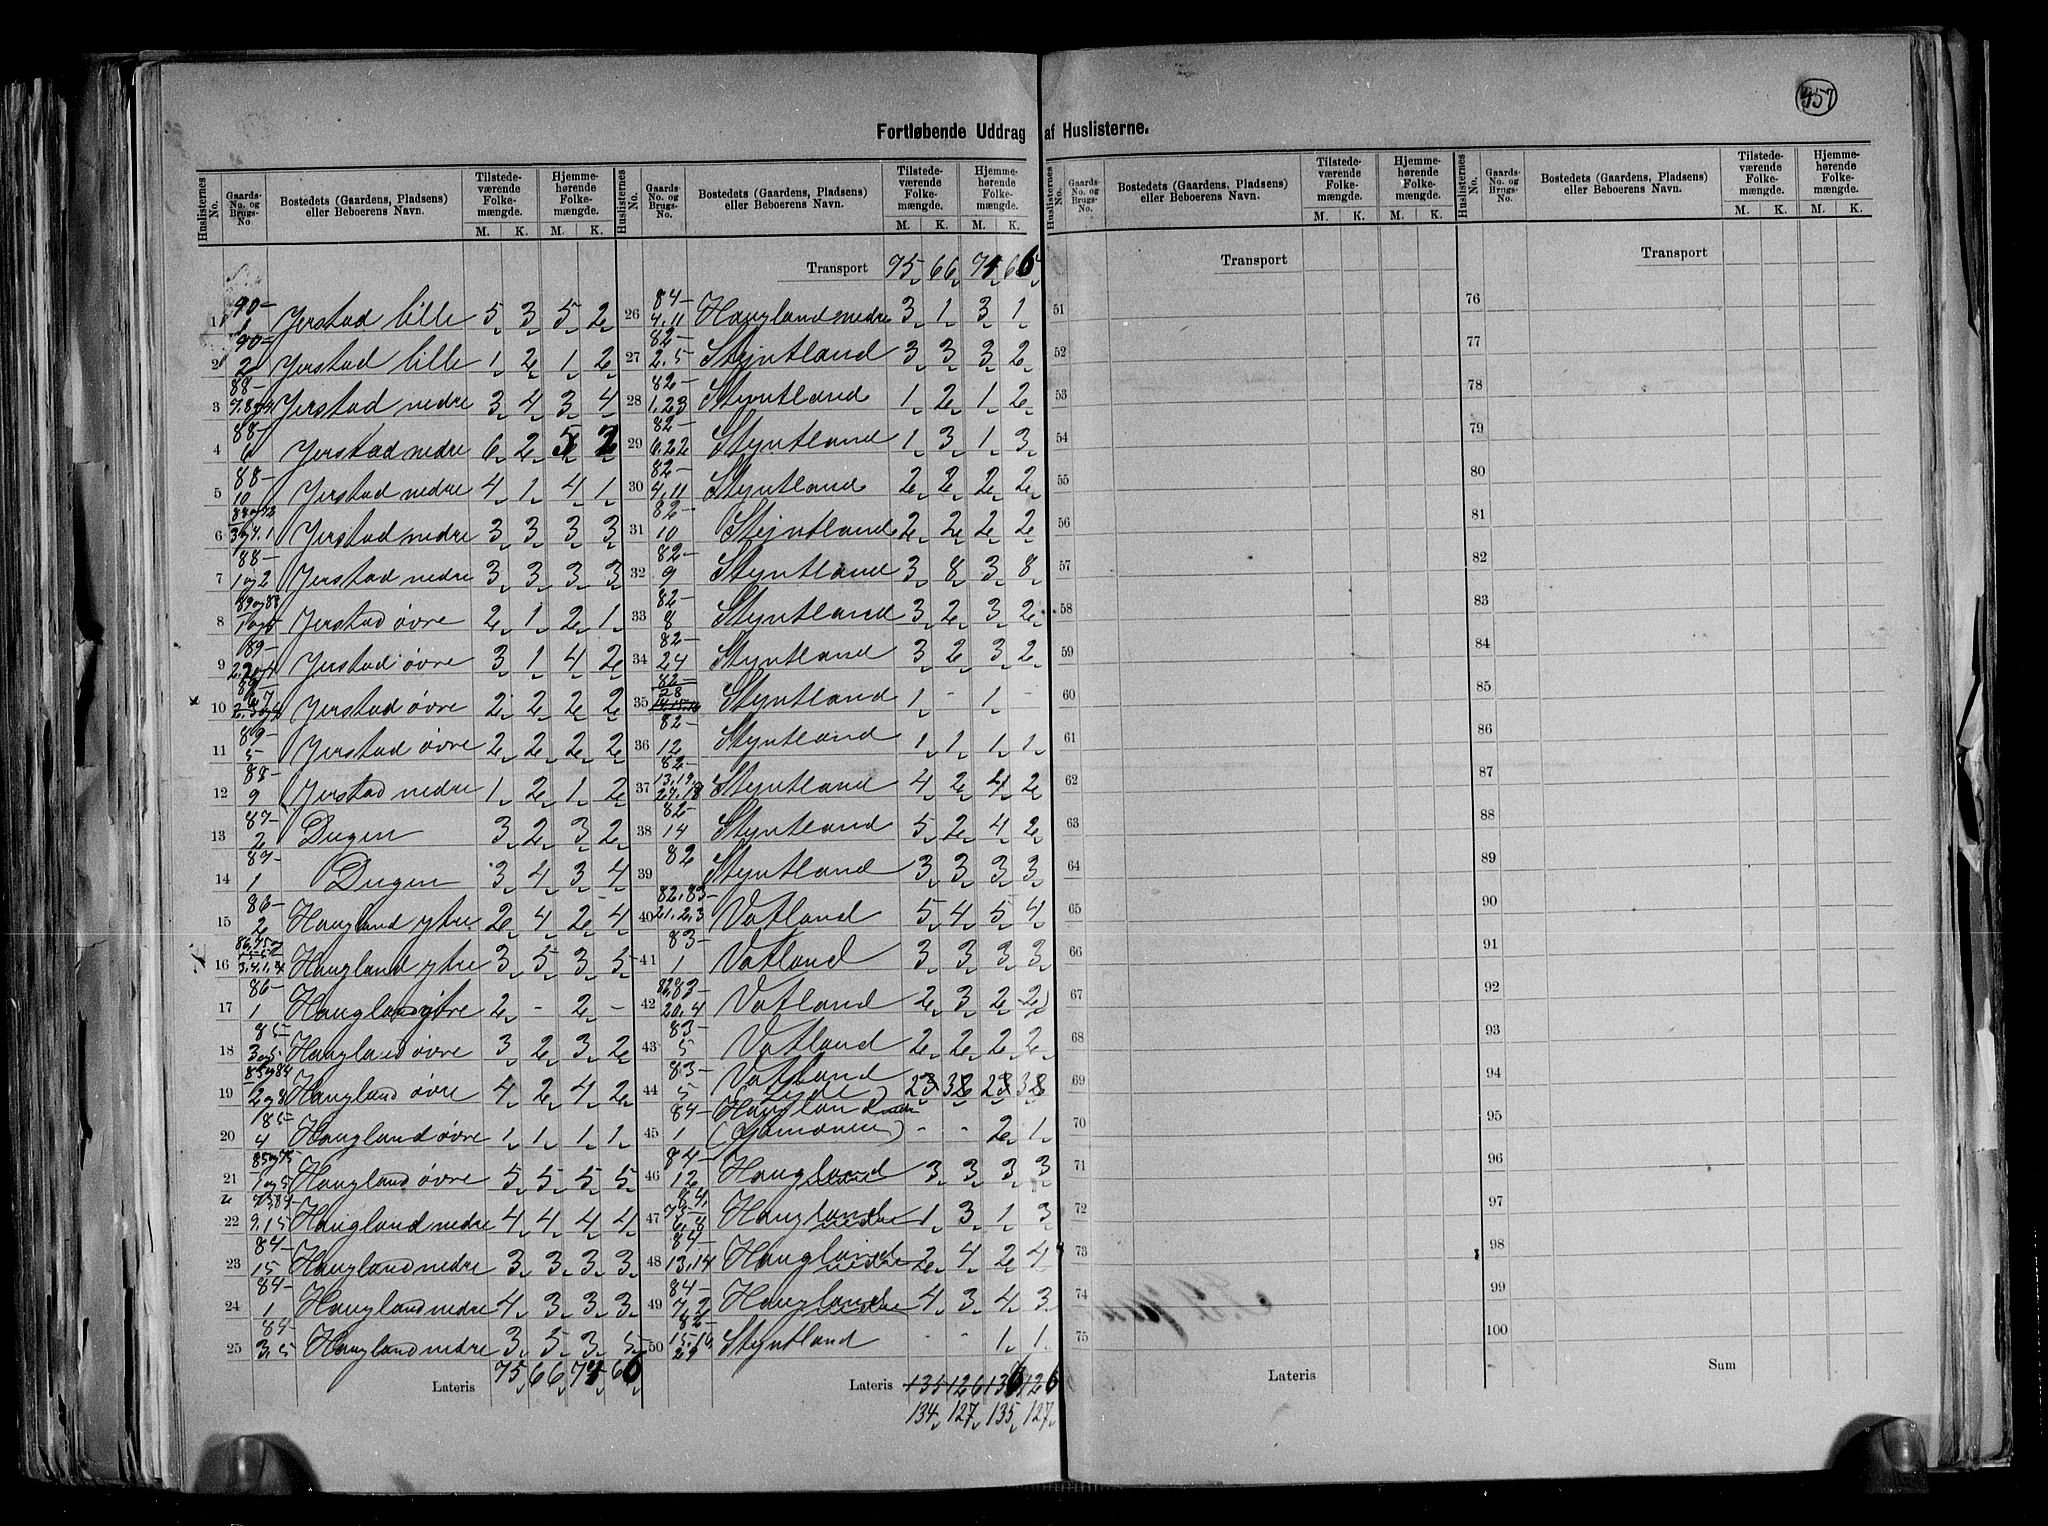 457
Fortløbende Uddrag af Huslisterne.
Huslisternes No. Gaards-No. og Brugs-No. Bostedets (Gaardens, Pladsens) eller Beboerens Navn. Tilstedeværende Folkemængde. M. K. Hjemmehørende Folkemængde. M. K.
1 90- 1 Jerstad lille 5 3 5 2
2 90- 2 Jerstad lille 1 2 1 2
3 88- Jerstad nedre 3 4 3 4
4 88- 6 Jerstad nedre 6 2 5 2
5 88- 10 Jerstad nedre 4 1 4 1
6 Jerstad nedre 3 3 3 3
7 88- 1 og 2 Jerstad nedre 3 3 3 3
8 89 og 88 Jerstad øvre 2 1 2 1
9 89- Jerstad øvre 3 1 4 2
10 89- Jerstad øvre 2 2 2 2
11 89- 5 Jerstad øvre 2 2 2 2
12 88- 9 Jerstad nedre 1 2 1 2
13 87- 2 Dugen 3 2 3 2
14 87- 1 Dugen 3 4 3 4
15 86- 2 Haugland ytre 2 4 2 4
16 Haugland ytre 3 5 3 5
17 86- 1 Haugland ytre 2 - 2 -
18 85- 3 og 5 Haugland øvre 3 2 3 2
19 85 og 84 2 og 8 Haugland øvre 4 2 4 2
20 85- 4 Haugland øvre 1 1 1 1
21 85 og 75 1 og 5 Haugland øvre 5 5 5 5
22 75,84- 9,15 Haugland nedre 4 4 4 4
23 84- 15 Haugland nedre 3 3 3 3
24 84- 1 Haugland nedre 4 3 3 3
25 84- 3,5 Haugland nedre 3 5 3 5
Lateris 75 66 74 66
Huslisternes No. Gaards-No. og Brugs-No. Bostedets (Gaardens, Pladsens) eller Beboerens Navn. Tilstedeværende Folkemængde. M. K. Hjemmehørende Folkemængde. M. K.
Transport 75 66 74 66
26 84- 4,11 Haugland nedre 3 1 3 1
27 82- 2,5 Stejntland 3 3 3 2
28 82- 1,23 Styntland 1 2 1 2
29 82- 6,22 Styntland 1 3 1 3
30 82- 4,11 Styntland 2 2 2 2
31 82- 10 Stejntland 2 2 2 2
32 82- 9 Styntland 3 8 3 8
33 82- 8 Styntland 3 2 3 2
34 82- 24 Styntland 3 2 3 2
35 82- 28 Styntland 1 - 1 -
36 82- 12 Styntland 1 1 1 1
37 82- 13,19, 27,18 Styntland 4 2 4 2
38 82- 14 Styntland 5 2 4 2
39 82 Styntland 3 3 3 3
40 82,83- 21,2,3 Vatland 5 4 5 4
41 83- 1 Vatland 3 3 3 3
42 82,83- 20,4 Vatland 2 3 2 2
43 83- 5 Vatland 2 2 2 2
44 83- 5 Vatland 2 3 2 3
45 84- 1 Haugland nedre - - 2 1
46 84- 12 Haugland nedre 3 3 3 3
47 75- 84, 6,8 Haugland nedre 1 3 1 3
48 84- 13,14 Haugland nedre 2 4 2 4
49 84- 7,2 Haugland nedre 4 3 4 3
50 82- 15,16, 29 Styntland - - 1 1
Lateris 135 126 136 126
134 127 135 127
Huslisternes No. Gaards-No. og Brugs-No. Bostedets (Gaardens, Pladsens) eller Beboerens Navn. Tilstedeværende Folkemængde. M. K. Hjemmehørende Folkemængde. M. K.
Transport
51
52
53
54
55
56
57
58
59
60
61
62
63
64
65
66
67
68
69
70
71
72
73
74
75
Lateris
Huslisternes No. Gaards-No. og Brugs-No. Bostedets (Gaardens, Pladsens) eller Beboerens Navn. Tilstedeværende Folkemængde. M. K. Hjemmehørende Folkemængde. M. K.
Transport
76
77
78
79
80
81
82
83
84
85
86
87
88
89
90
91
92
93
94
95
96
97
98
99
100
Sum